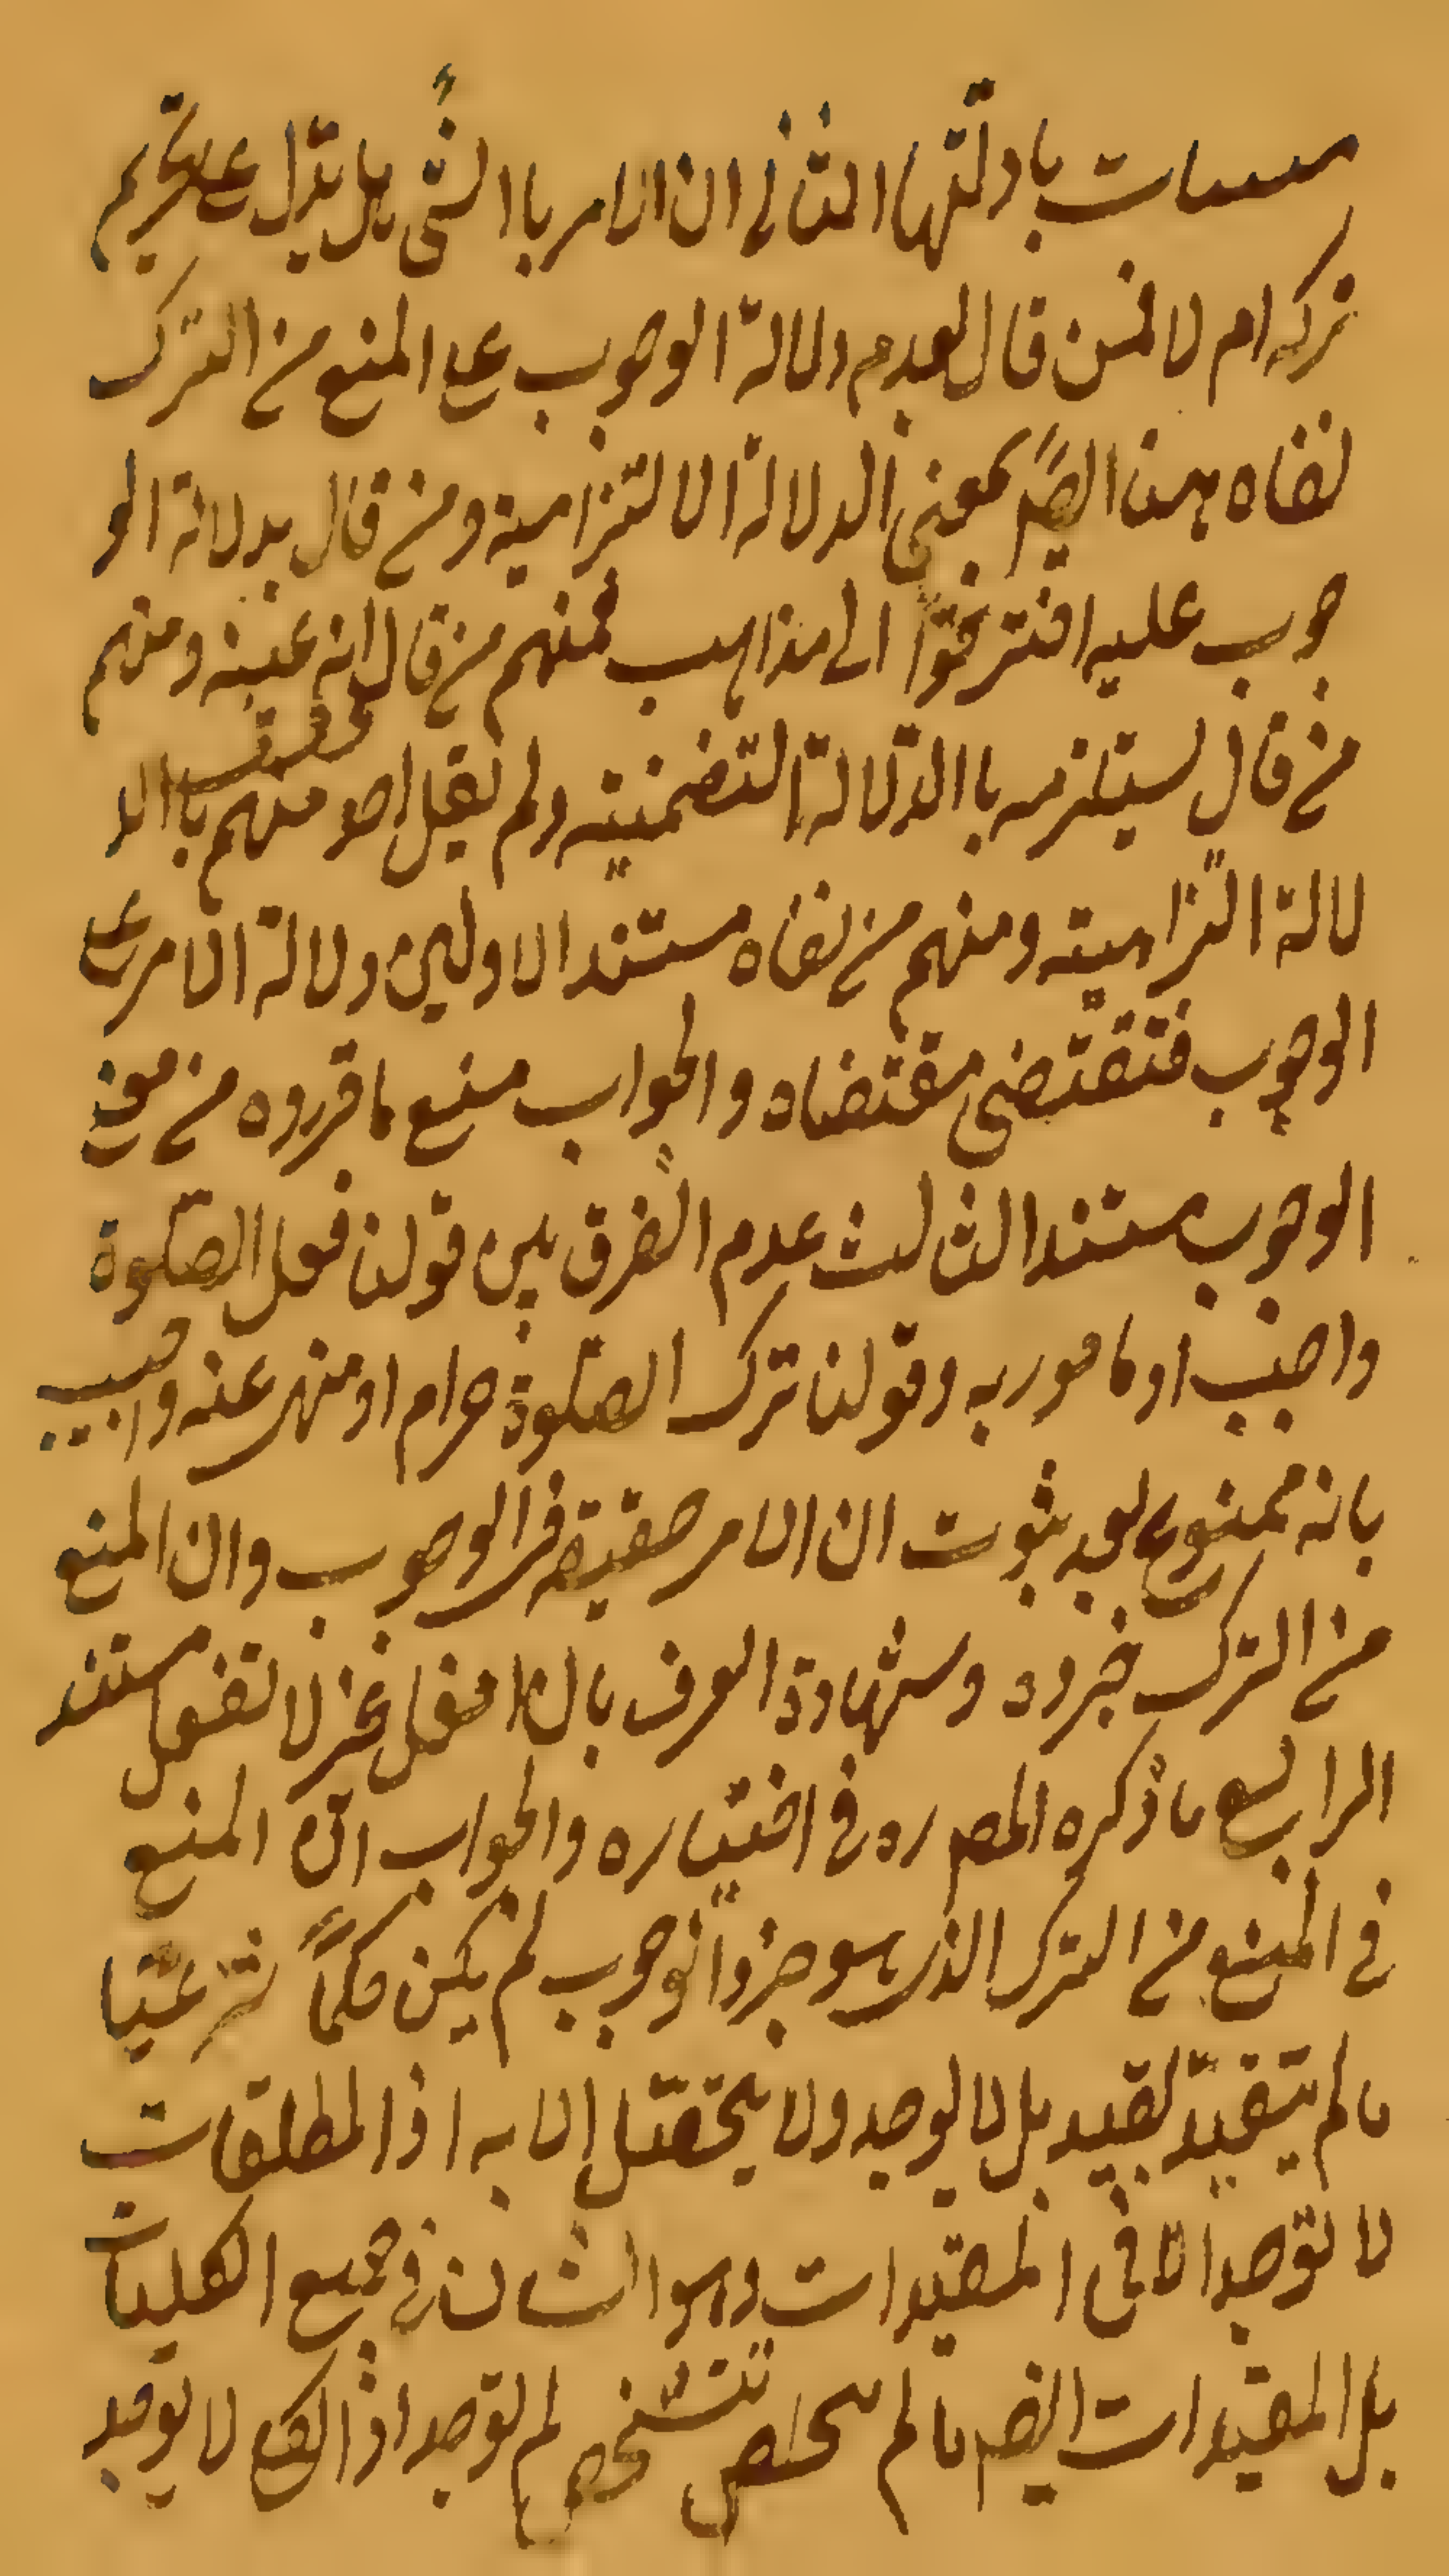 مسسات بادلّتها الثانى ان الامر باالشئ هل يدّل على تحريم
تركه ام لا فمن قال بعدم دلالة الوجوب على المنع من الترك
نفاه هنا ايضاً بمعنى الدلالة الالتزامية ومن قال بدلالة الو
جوب عليه افترقوا الى مذاهب فمنهم من قال انه عينه ومنهم
من قال يستلزمه باالدّلالة التضمنيّة ولم يقل احد منهم باالد
لالة التزاميّة ومنهم من نفاه مستند الاولين دلالة الامر على
الوجوب فتقتضى مقتضاه والجواب منع ما قرروه من معنى
الوجوب مستند الثالث عدم الفرق بين قولنا فعل الصّلوة
واجب او مامور به وقولنا ترك الصّلوة حرام او منهى عنه واجيب
بانه ممنوع بعد ثبوت ان الامر حقيقة فى الوجوب وان المنع
من الترك جزوه وشهادة العرف بان افعل غير لا تفعل مستند
الرابع ما ذكره المص ره فى اختياره والجواب انّ المنع
فى المنع من الترك الذى هو جزو الوجوب لم يكن حكماً شرعيّا
ما لم يتقيّد بقيد بل لا يوجد ولا يتحصّل الا به اذ المطلقات
لا توجد الا فى المقيدات وهو الشان فى جميع الكليات
بل المقيّدات ايضا ما لم تتشخص لم توجد اذ الكلى لا يوجد